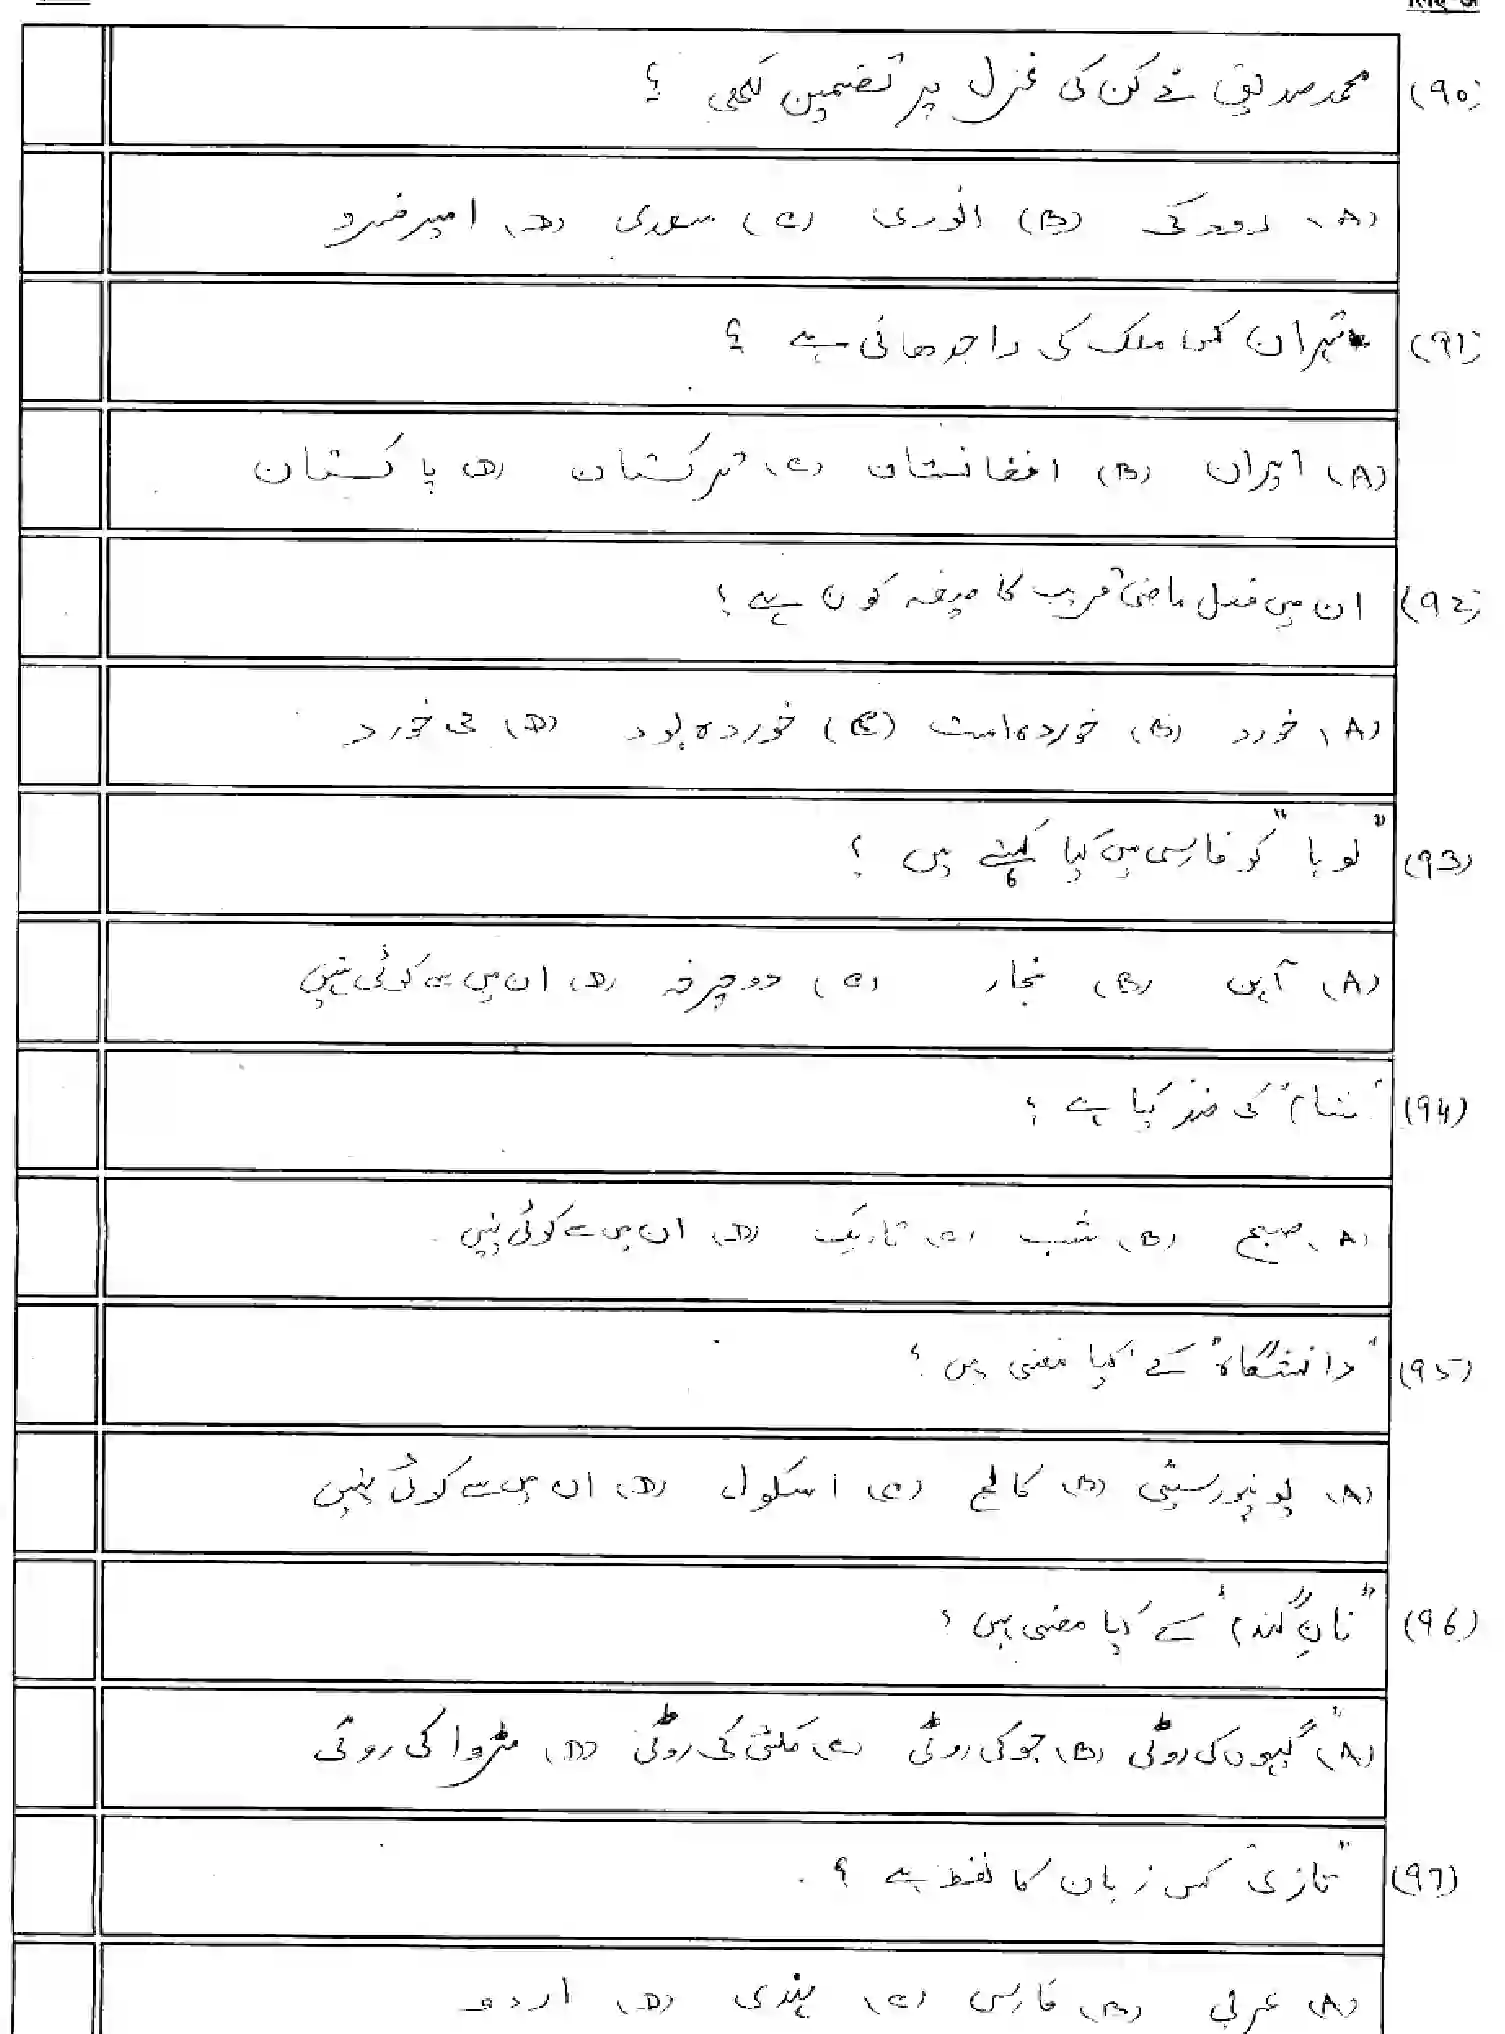 (90) محمد صدیق نے کن کی غزل پر تضمین لکھی ؟
(A) رودکی (B) انوری (C) سعدی (D) امیر خسرو
(91) تہران کس ملک کی راجدھانی ہے ؟
(A) ایران (B) افغانستان (C) ترکستان (D) پاکستان
(92) ان میں فعل ماضی قریب کا صیغہ کون ہے ؟
(A) خورد (B) خوردہ است (C) خوردہ بود (D) می خورد
(93) "لوہا" کو فارسی میں کیا کہتے ہیں ؟
(A) آہن (B) نجار (C) دوچرخہ (D) ان میں سے کوئی نہیں
(94) "شام" کی ضد کیا ہے ؟
(A) صبح (B) شب (C) تاریک (D) ان میں سے کوئی نہیں
(95) "دانشگاہ" کے کیا معنی ہیں ؟
(A) یونیورسیٹی (B) کالج (C) اسکول (D) ان میں سے کوئی نہیں
(96) "نانِ گندم" کے کیا معنی ہیں ؟
(A) گیہوں کی روٹی (B) جو کی روٹی (C) مکئی کی روٹی (D) مڑوا کی روٹی
(97) "تازی" کس زبان کا لفظ ہے ؟
(A) عربی (B) فارسی (C) ہندی (D) اردو